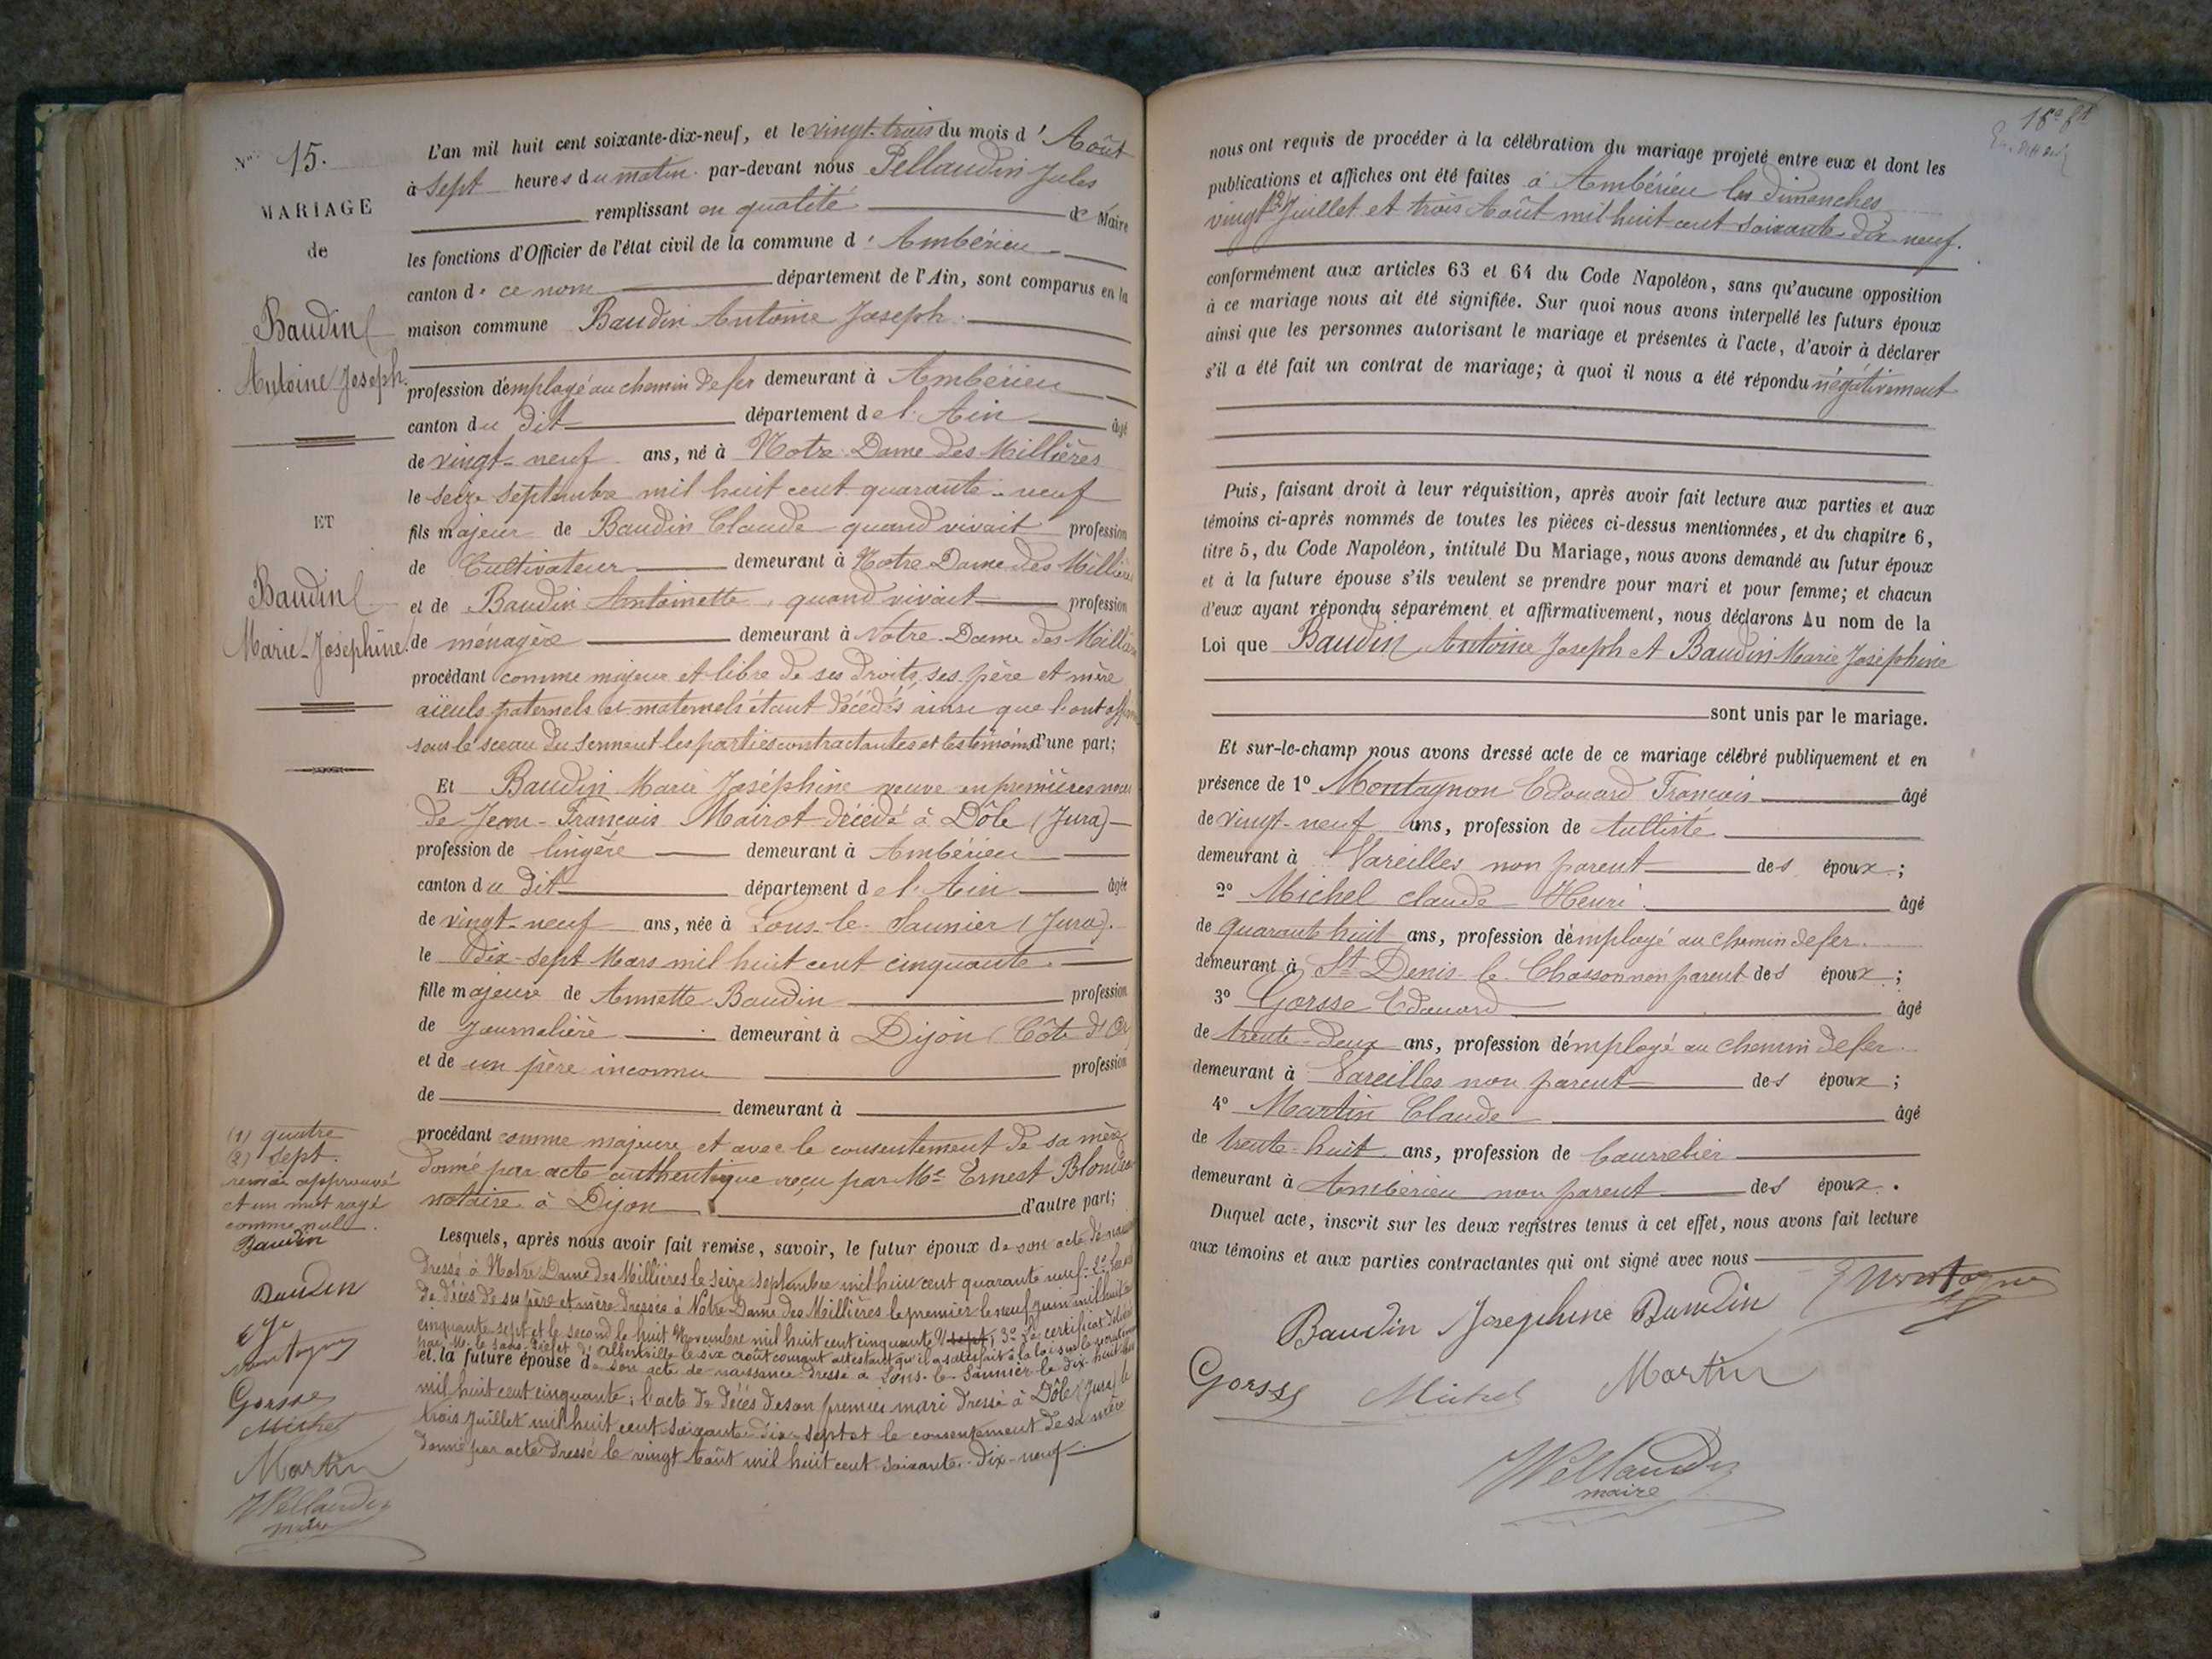 Nos 15.
MARIAGE
de
Baudin
Antoine Joseph.
ET
Baudin
Marie-Joséphine.
L'an mil huit cent soixante-dix-neuf, et le vingt-trois du mois d'Août
à sept heures du matin par-devant nous Pellaudin Jules
remplissant en qualité de Maire
les fonctions d'Officier de l'état civil de la commune d'Ambérieu
canton de ce nom département de l'Ain, sont comparus en la
maison commune Baudin Antoine Joseph.
profession d'employé au chemin de fer demeurant à Ambérieu
canton du dit département de l'Ain âgé
de vingt-neuf ans, né à Notre Dame des Millières
le seize septembre mil huit cent quarante-neuf
fils majeur de Baudin Claude quand vivait profession
de Cultivateur demeurant à Notre Dame des Millières
et de Baudin Antoinette, quand vivait profession
de ménagère demeurant à Notre-Dame des Millières
procédant comme majeur et libre de ses droits, ses père et mère
aïeuls paternels et maternels étant décédés ainsi que l'ont
sous le sceau du serment les parties contractantes et les témoins d'une part;
Et Baudin Marie Joséphine veuve en premières noces
de Jean-François Mairot décédé à Dôle (Jura)
profession de lingère demeurant à Ambérieu
canton du dit département de l'Ain âgée
de vingt-neuf ans, née à Lons-le-Saunier (Jura).
le dix-sept Mars mil huit cent cinquante.
fille majeure de Annette Baudin profession
de Journalière demeurant à Dijon (Côte d'Or)
et de un père inconnu profession
de demeurant à
procédant comme majeure et avec le consentement de sa mère
donné par acte authentique reçu par Me Ernest
notaire à Dijon d'autre part;
Lesquels, après nous avoir fait remise, savoir, le futur époux de son acte de
dressé à Notre Dame des Millières le seize septembre mil huit cent quarante neuf 2°
de décès de ses père et mère dressés à Notre Dame des Millières le premier le neuf juin mil huit cent
cinquante sept et le second le huit Novembre mil huit cent cinquante sept, 3° Le certificat délivré
par Mr le Sous-Préfet d'Albertville le six août courant attestant qu'il a satisfait à la loi sur le recrutement
et la future épouse de son acte de naissance dressé à Lons-le-Saunier le dix-huit
mil huit cent cinquante; l'acte de décès de son premier mari dressé à Dôle (Jura) le
trois Juillet mil huit cent soixante-dix-sept et le consentement de sa mère
donné par acte dressé le vingt Août mil huit cent soixante-dix-neuf
(1) quatre
(2) sept.
renvoi approuvé
et un mot rayé
comme nul.
Baudin
Baudin
Gorsse
Michel
Martin
JPellaudin
maire
15e ft
nous ont requis de procéder à la célébration du mariage projeté entre eux et dont les
publications et affiches ont été faites à Ambérieu les dimanches
vingt Juillet et trois Août mil huit cent soixante-dix-neuf.
conformément aux articles 63 et 64 du Code Napoléon, sans qu'aucune opposition
à ce mariage nous ait été signifiée. Sur quoi nous avons interpellé les futurs époux
ainsi que les personnes autorisant le mariage et présentes à l'acte, d'avoir à déclarer
s'il a été fait un contrat de mariage; à quoi il nous a été répondu négativement
Puis, faisant droit à leur réquisition, après avoir fait lecture aux parties et aux
témoins ci-après nommés de toutes les pièces ci-dessus mentionnées, et du chapitre 6,
titre 5, du Code Napoléon, intitulé Du Mariage, nous avons demandé au futur époux
et à la future épouse s'ils veulent se prendre pour mari et pour femme; et chacun
d'eux ayant répondu séparément et affirmativement, nous déclarons Au nom de la
Loi que Baudin, Antoine Joseph et Baudin Marie Joséphine
sont unis par le mariage.
Et sur-le-champ nous avons dressé acte de ce mariage célébré publiquement et en
présence de 1° Montagnon Edouard François âgé
de vingt-neuf ans, profession de tulliste
demeurant à Vareilles non parent des époux;
2° Michel Claude Henri âgé
de quarante huit ans, profession d'employé au chemin de fer
demeurant à St Denis-le-Chosson non parent des époux;
3° Gorsse Edouard âgé
de trente-deux ans, profession d'employé au chemin de fer
demeurant à Vareilles non parent des époux;
4° Martin Claude âgé
de trente-huit ans, profession de bourrelier
demeurant à Ambérieu non parent des époux.
Duquel acte, inscrit sur les deux registres tenus à cet effet, nous avons fait lecture
aux témoins et aux parties contractantes qui ont signé avec nous
Baudin Josephine Baudin
Gorsse Michel Martin
JPellaudin
maire